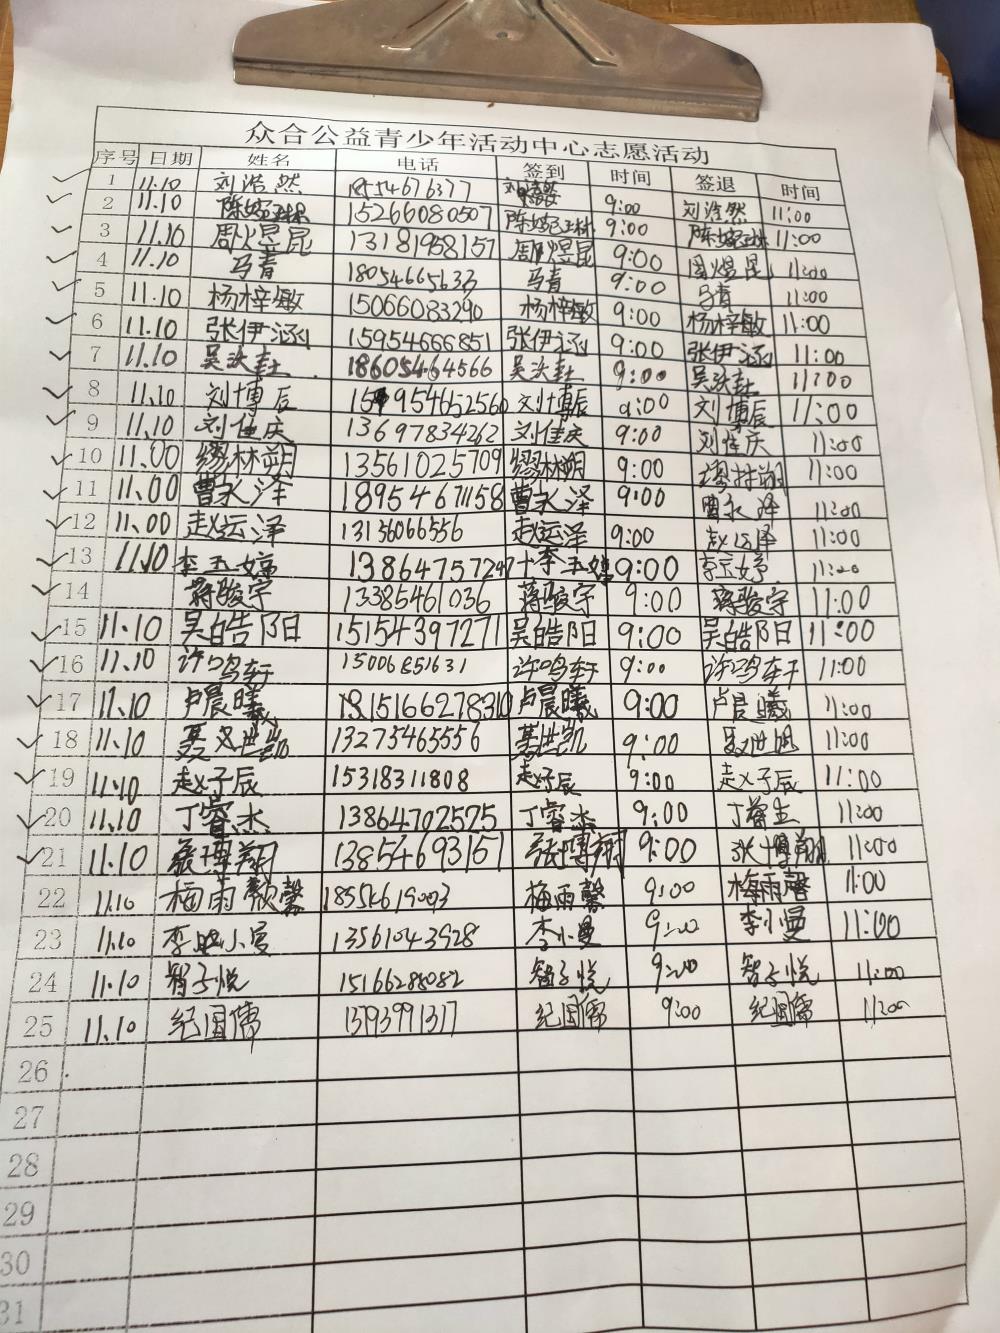 众合公益青少年活动中心志愿活动
序号 日期 姓名 电话 签到 时间 签退 时间
1 11.10 刘浩然 18554676377 刘浩然 9:00 刘浩然 11:00
2 11.10 15266080507 9:00 11:00
3 11.10 周煜昆 13181958157 周煜昆 9:00 周煜昆 11:00
4 11.10 马青 18054665633 马青 9:00 马青 11:00
5 11.10 杨梓敏 15066083290 杨梓敏 9:00 杨梓敏 11:00
6 11.10 张伊涵 15954666851 张伊涵 9:00 张伊涵 11:00
7 11.10 18605464566 9:00 11:00
8 11.10 刘博辰 刘博辰 9:00 刘博辰 11:00
9 11.10 刘佳庆 13697834262 刘佳庆 9:00 刘佳庆 11:00
10 11.00 缪林朔 13561025709 缪林朔 9:00 缪林朔 11:00
11 11.00 曹永泽 18954671158 曹永泽 9:00 曹永泽 11:00
12 11.00 赵运泽 13156066556 赵运泽 9:00 赵运泽 11:00
13 11.10 李玉婷 13864757247 李玉婷 9:00 李玉婷 11:00
14 蒋骏宇 13385461036 蒋骏宇 9:00 蒋骏宇 11:00
15 11.10 吴皓阳 15154397271 吴皓阳 9:00 吴皓阳 11:00
16 11.10 许鸣轩 15006851631 许鸣轩 9:00 许鸣轩 11:00
17 11.10 卢晨曦 卢晨曦 9:00 卢晨曦 11:00
18 11.10 13275465556 9:00 11:00
19 11.10 赵子辰 15318311808 赵子辰 9:00 赵子辰 11:00
20 11.10 丁睿杰 13864702525 丁睿杰 9:00 丁睿杰 11:00
21 11.10 张博翔 13854693167 张博翔 9:00 张博翔 11:00
22 11.10 梅雨馨 梅雨馨 9:00 梅雨馨 11:00
23 11.10 李小曼 13561043928 李小曼 9:00 李小曼 11:00
24 11.10 智子悦 15166288082 智子悦 9:00 智子悦 11:00
25 11.10 纪国儒 纪国儒 9:00 纪国儒 11:00
26
27
28
29
30
31